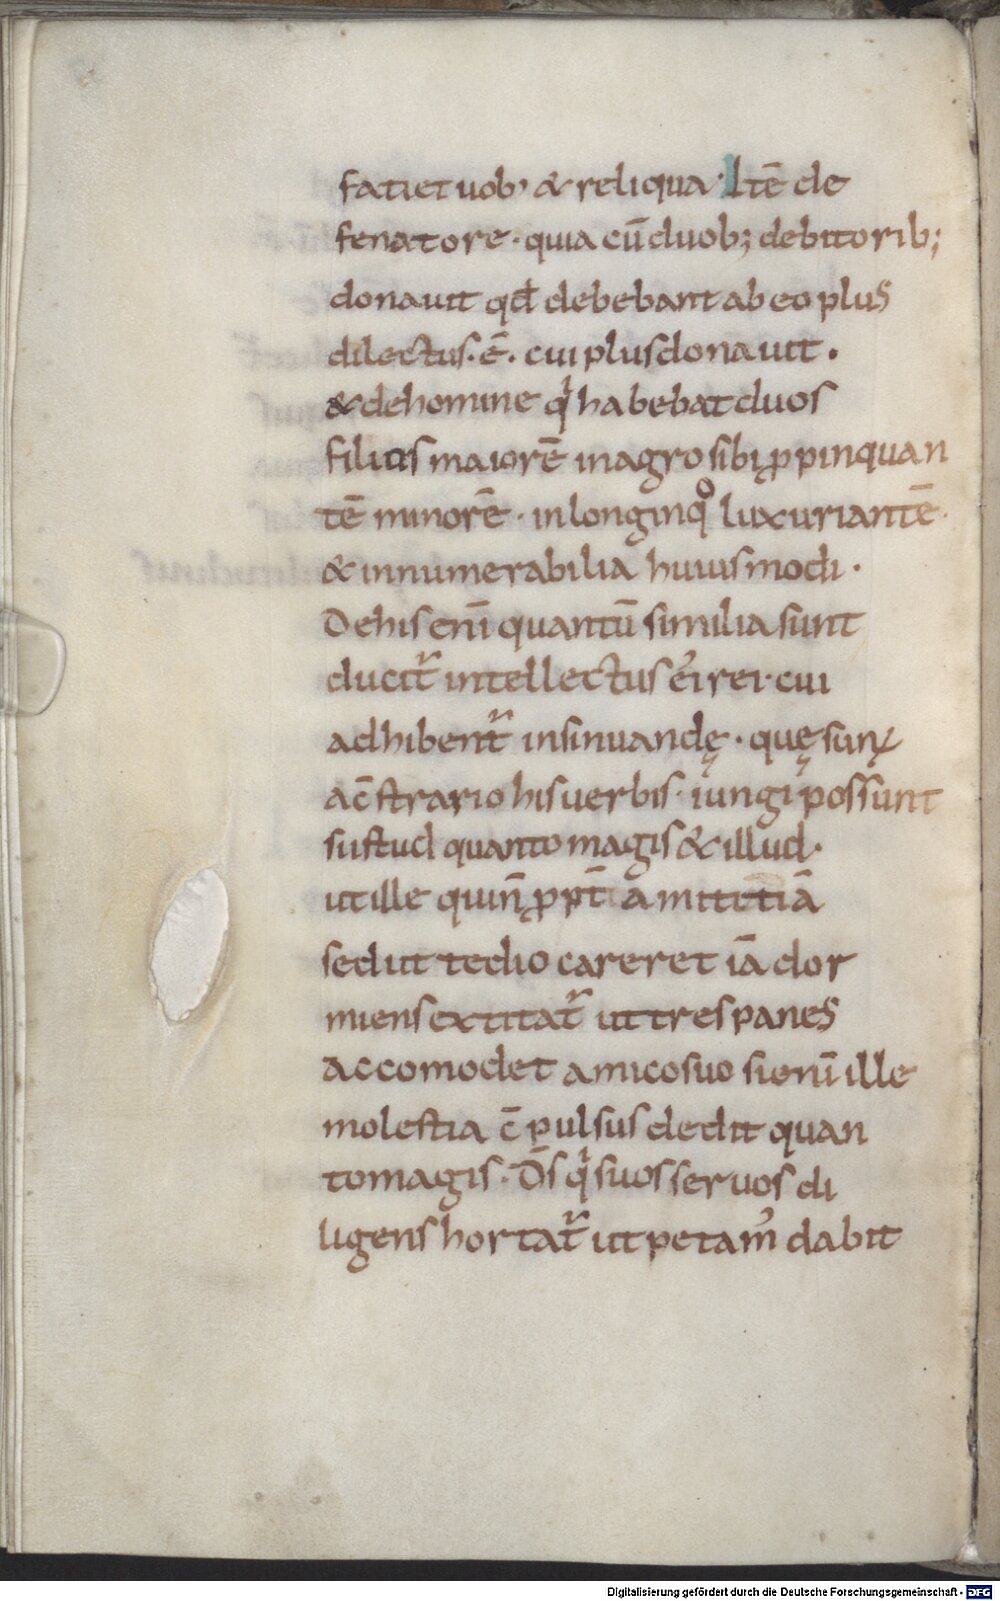 faciet uob' & reliqua· Itē de
feneratore· quia cū duob; debitorib;
donauit qđ debebant ab eo plus
dilectus·ē· cui plus donauit·
& dehomine q' habebat duos
filios maiorē inagro sibi ꝓpinquan
tē minorē· inlonginq° luxuriantē·
& innumerabilia huiusmodi·
Dehis enī quantū similia sunt
ducit᷑ intellectus ei' rei· cui
adhibent᷑ insinuandę· quę sunt
ac̄strario his uerbis· iungi possunt
sustud quanto magis & illud·
ut ille quin̄ ꝓpt̄ amicitiā
sed ut tedio careret iā dor
miens excitat᷑ ut tres panes
accomodet amico suo si enī ille
molestia c̄pulsus dedit quan
tomagis· D̄s q' suos seruos di
ligens hortat᷑ ut petam' dabit
Digitalisierung gefördert durch die Deutsche Forschungsgemeinschaft - DFG